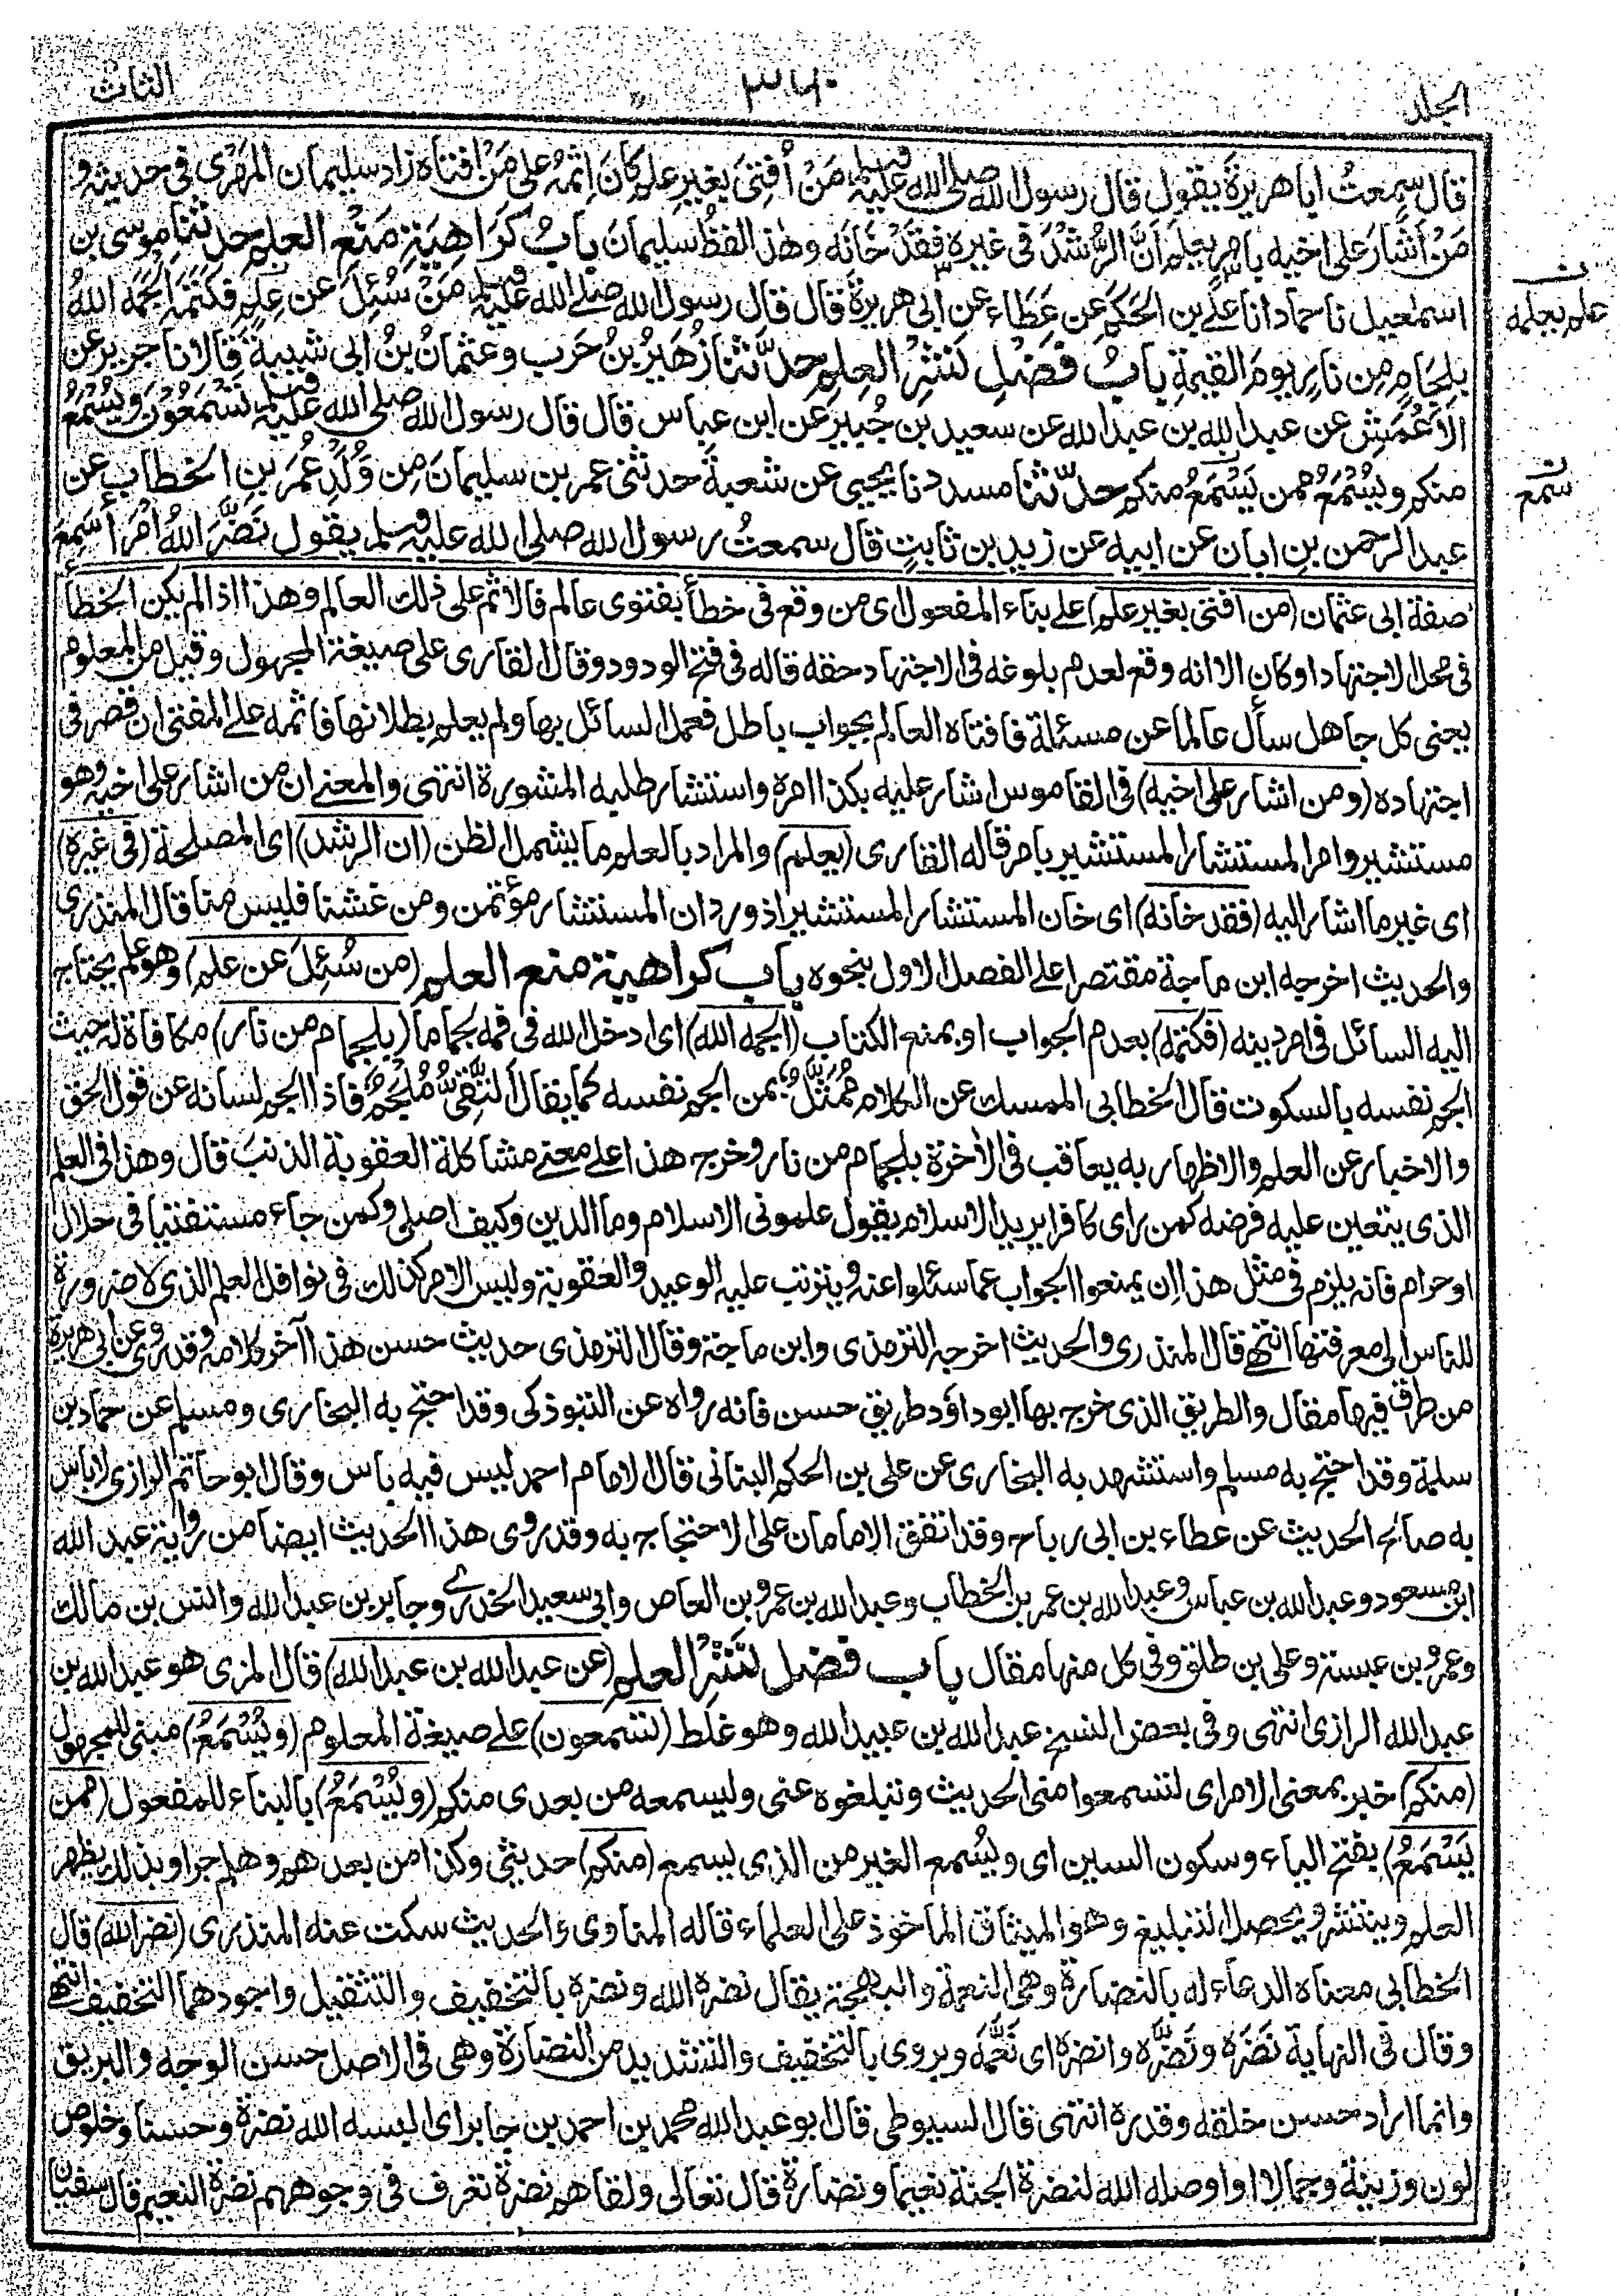 الجلد
٣٦٠
الثالث
قال سمعتُ ابا هريرة يقول قال رسول الله صلى الله عليه وسلم مَنْ أُفْتِيَ بغيرِ علمٍ كَانَ اِثْمُهُ على مَنْ افتاه زاد سليمان المهرى فى حديثه و
مَنْ اَشَارَ على اخيه بامرٍ يعلم اَنَّ الرُّشْدَ فى غيره فَقَدْ خَانَه وهٰذا لفظُ سليمانَ بابُ كَرَاهِيَةِ مَنْعِ العلم حدثنا موسى بن
اسمٰعيل نا حماد انا عليُّ بن الحَكَم عن عَطَاء عن ابى هريرة قال قال رسول الله صلى الله عليه وسلم مَنْ سُئِلَ عن عِلمٍ فكَتَمَه اَلْجَمَه اللهُ
بلجامٍ مِن نارٍ يومَ القيٰمةِ بابُ فَضْلِ نَشْرِ العِلمِ حدَّثنا زُهَيْرُ بنُ حَرب وعثمانُ بنُ ابى شيبةَ قالا نا جريرٌ عن
الاَعْمَشِ عن عبد الله بن عبد الله عن سعيد بن جُبيرٍ عن ابن عباس قال قال رسول الله صلى الله عليه وسلم تَسْمَعُوْنَ ويُسْمَعُ
منكم ويُسْمَعُ ممن يَسْمَعُ منكم حدّثنا مسدد نا يحيى عن شعبة حدثنى عمر بن سليمانَ مِن وُلْدِ عُمَرَ بنِ الخطاب عن
عبد الرحمن بنِ ابان عن ابيه عن زيد بن ثابتٍ قال سمعتُ رسول الله صلى الله عليه وسلم يقول نَضَّرَ اللهُ امْرَأً سَمِعَ
علم يعلمه
سمع
صفة ابى عثمان (من افتى بغير علم) على بناء المفعول اى من وقع فى خطأ بفتوى عالم فالاثم على ذلك العالم وهذا اذا لم يكن الخطأ
فى محل الاجتهاد او كان الا انه وقع لعدم بلوغه فى الاجتهاد حقه قاله فى فتح الودود وقال القارى على صيغة المجهول وقيل من المعلوم
يعنى كل جاهل سأل عالما عن مسئلة فافتاه العالم بجواب باطل فعمل السائل بها ولم يعلم بطلانها فاثمه على المفتى ان قصر فى
اجتهاده (ومن اشار على اخيه) فى القاموس اشار عليه بكذا امره واستشار طلبه المشورة انتهى والمعنى ان من اشار على اخيه وهو
مستشير وامر المستشار المستشير بامر قاله القارى (يعلم) والمراد بالعلم ما يشمل الظن (ان الرشد) اى المصلحة (فى غيره)
اى غير ما اشار اليه (فقد خانه) اى خان المستشار المستشير اذ ورد ان المستشار مؤتمن ومن غشنا فليس منا قال المنذرى
والحديث اخرجه ابن ماجة مقتصرا على الفصل الاول بنحوه باب كراهية منع العلم (من سُئِلَ عن علم) وهو علم يحتاج
اليه السائل فى امر دينه (فكتمه) بعدم الجواب او بمنع الكتاب (الجمه الله) اى ادخل الله فى فمه لجاما (بلجام من نار) مكافاة له حيث
الجم نفسه بالسكوت قال الخطابى الممسك عن الكلام مُمَثَّلٌ بمن الجم نفسه كما يقال التَّقِىُّ مُلْجَمٌ فاذا الجم لسانه عن قول الحق
والاخبار عن العلم والاظهار به يعاقب فى الاٰخرة بلجام من نار وخرج هذا على معنى مشاكلة العقوبة الذنبَ قال وهذا فى العلم
الذى يتعين عليه فرضه كمن راى كافرا يريد الاسلام يقول علمونى الاسلام وما الدين وكيف اصلى وكمن جاء مستفتيا فى حلال
او حرام فانه يلزم فى مثل هذا ان يمنعوا الجواب عما سئلوا عنه ويترتب عليه الوعيد والعقوبة وليس الامر كذلك فى نوافل العلم الذى لا ضرورة
للناس الى معرفتها انتهى قال المنذرى والحديث اخرجه الترمذى وابن ماجة وقال الترمذى حديث حسن هذا اٰخر كلامه وقد روى عن ابى هريرة
من طرق فيها مقال والطريق الذى خرج بها ابو داؤد طريق حسن فانه رواه عن التبوذكى وقد احتج به البخارى ومسلم عن حماد بن
سلمة وقد احتج به مسلم واستشهد به البخارى عن على بن الحكم البنانى قال الامام احمد ليس فيه باس وقال ابو حاتم الرازى لا باس
به صالح الحديث عن عطاء بن ابى رباح وقد اتفق الامامان على الاحتجاج به وقد روى هذا الحديث ايضا من رواية عبد الله
ابن مسعود وعبد الله بن عباس وعبد الله بن عمر بن الخطاب وعبد الله بن عمرو بن العاص وابى سعيد الخدرى وجابر بن عبد الله وانس بن مالك
وعمرو بن عبسة وعلى بن طلق وفى كل منها مقال باب فضل نَشْرِ العلم (عن عبد الله بن عبد الله) قال المزى هو عبد الله بن
عبد الله الرازى انتهى وفى بعض النسخ عبد الله بن عبيد الله وهو غلط (تسمعون) على صيغة المعلوم (ويُسْمَعُ) مبنى للمجهول
(منكم) خبر بمعنى الامر اى لتسمعوا منى الحديث وتبلغوه عنى وليسمعه من بعدى منكم (ويُسْمَعُ) بالبناء للمفعول (ممن
يَسْمَعُ) بفتح الياء وسكون السين اى ويُسمع الغير من الذى يسمع (منكم) حديثى وكذا من بعدهم وهلم جرا وبذلك يظهر
العلم وينتشر ويحصل التبليغ وهو الميثاق الماخوذ على العلماء قاله المناوى والحديث سكت عنه المنذرى (نضر الله) قال
الخطابى معناه الدعاء له بالنضارة وهى النعمة والبهجة يقال نضره الله ونضره بالتخفيف والتثقيل واجودهما التخفيف انتهى
وقال فى النهاية نَضَرَه ونَضَّرَه وانضره اى نَعَّمَه ويروى بالتخفيف والتشديد من النضارة وهى فى الاصل حسن الوجه والبريق
وانما اراد حسن خلقه وقدره انتهى قال السيوطى قال ابو عبد الله محمد بن احمد بن جابر اى البسه الله نضرة وحسنا وخلوص
لون وزينة وجمالا او اوصله الله لنضرة الجنة نعيما ونضارة قال تعالى ولقاهم نضرة تعرف فى وجوههم نضرة النعيم قال سفيان